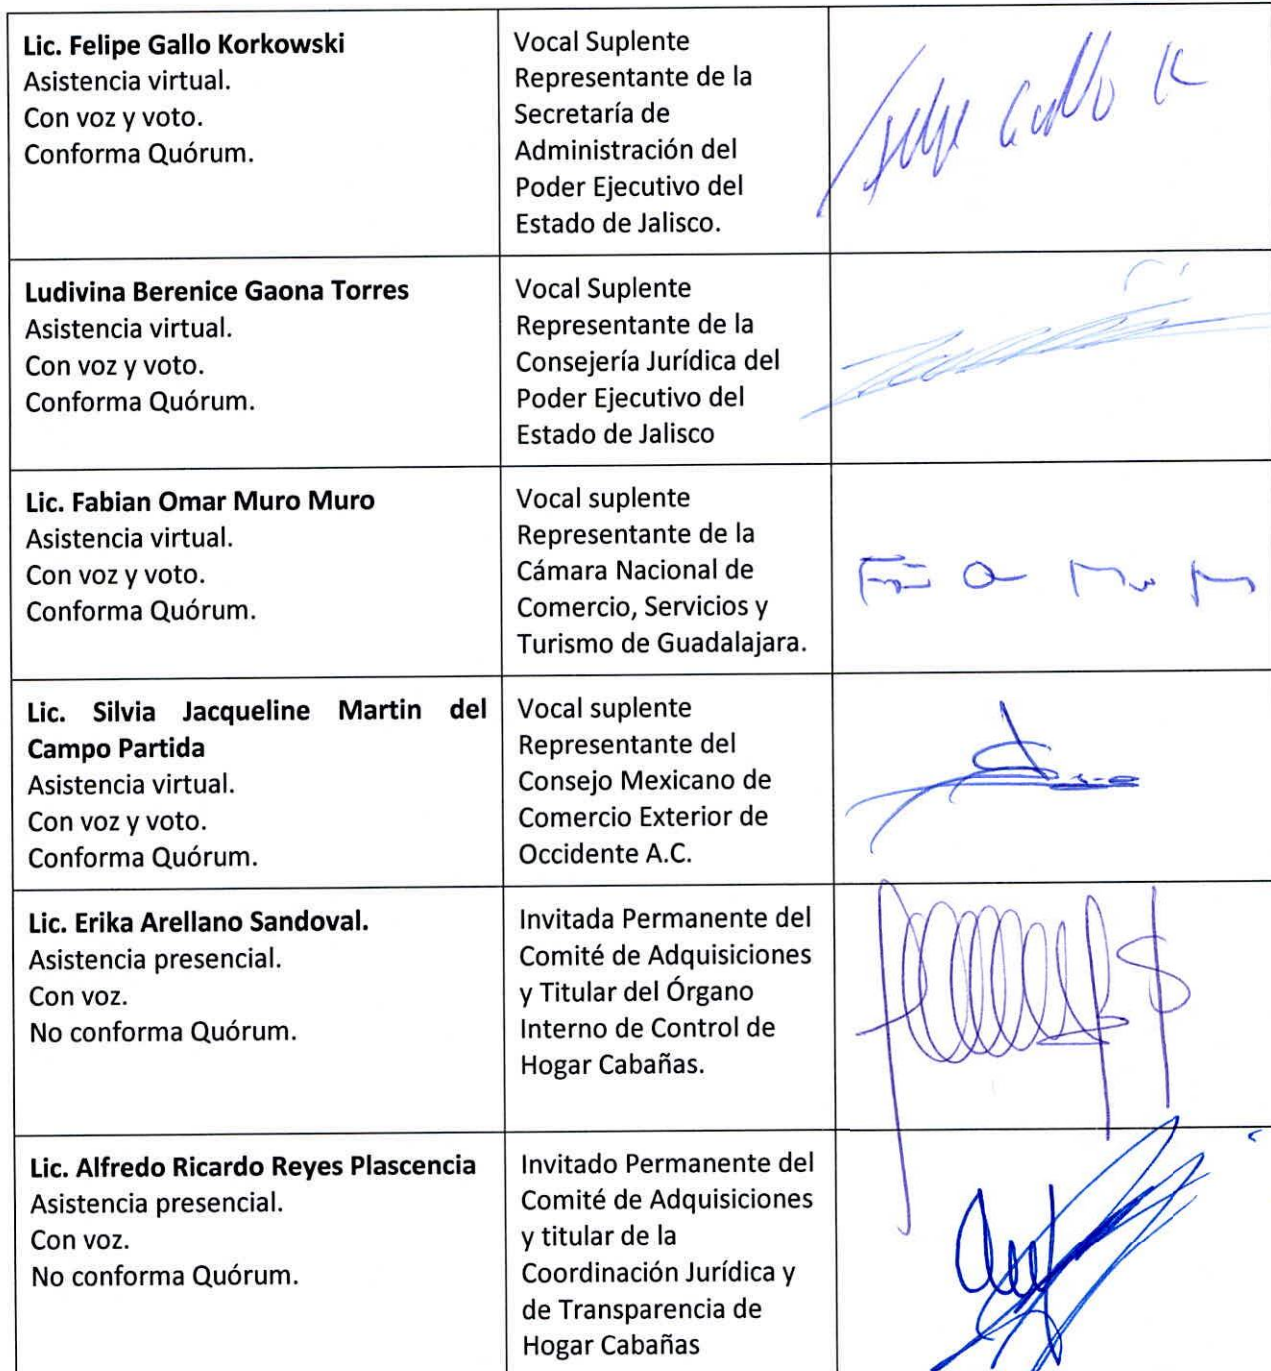 Lic. Felipe Gallo Korkowski
Asistencia virtual.
Con voz y voto.
Conforma Quórum.
Vocal Suplente
Representante de la
Secretaría de
Administración del
Poder Ejecutivo del
Estado de Jalisco.
Felipe Gallo K
Ludivina Berenice Gaona Torres
Asistencia virtual.
Con voz y voto.
Conforma Quórum.
Vocal Suplente
Representante de la
Consejería Jurídica del
Poder Ejecutivo del
Estado de Jalisco
Lic. Fabian Omar Muro Muro
Asistencia virtual.
Con voz y voto.
Conforma Quórum.
Vocal suplente
Representante de la
Cámara Nacional de
Comercio, Servicios y
Turismo de Guadalajara.
Lic. Silvia Jacqueline Martin del
Campo Partida
Asistencia virtual.
Con voz y voto.
Conforma Quórum.
Vocal suplente
Representante del
Consejo Mexicano de
Comercio Exterior de
Occidente A.C.
Lic. Erika Arellano Sandoval.
Asistencia presencial.
Con voz.
No conforma Quórum.
Invitada Permanente del
Comité de Adquisiciones
y Titular del Órgano
Interno de Control de
Hogar Cabañas.
Lic. Alfredo Ricardo Reyes Plascencia
Asistencia presencial.
Con voz.
No conforma Quórum.
Invitado Permanente del
Comité de Adquisiciones
y titular de la
Coordinación Jurídica y
de Transparencia de
Hogar Cabañas